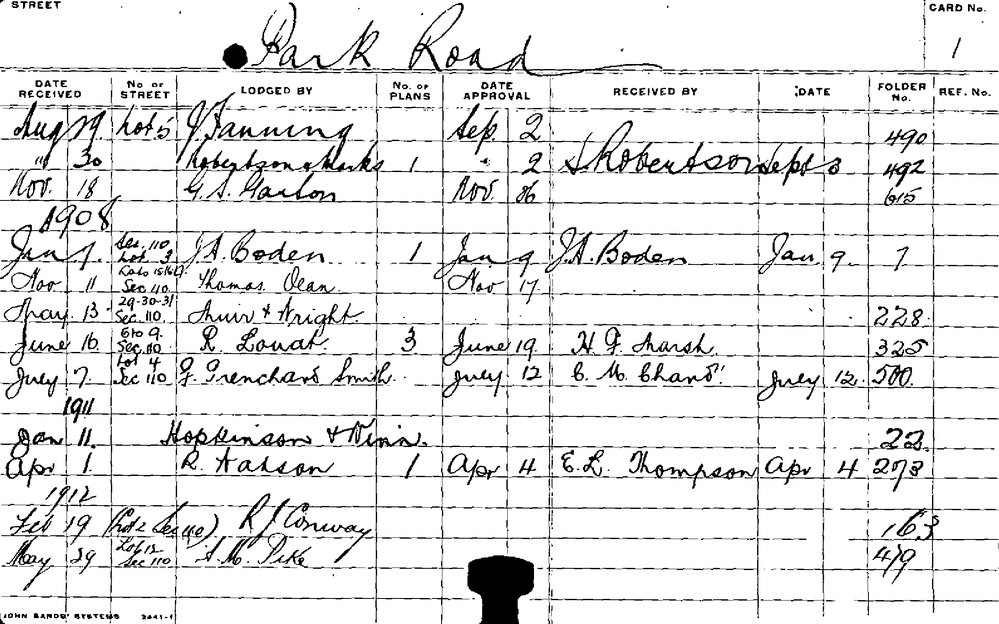 STREET CARD No.
Park Road 1
DATE RECEIVED No. OF STREET LODGED BY No. OF PLANS DATE APPROVAL RECEIVED BY DATE FOLDER No. REF. No.
Aug 29 Lot 5 J Fanning Sep. 2 490
" 30 Robertson & Marks 1 " 2 Robertson Sept 3 492
Nov. 18 G. S. Nov. 615
1908
Jan 7. Sec. 110 Lot 3 J. A. Boden 1 Jan 9 J. A. Boden Jan 9. 7
Nov 11 Sec 110 Thomas Dean Nov 17.
May 13 29-30-31 Sec. 110 Muir & Wright. 228
June 16. 6 to 9. Sec. 110 R. 3 June 19. H. F. Marsh. 325
July 7. Lot 4 Sec 110 F. Trenchard Smith. July 12 C. M. July 12. 500.
1911
Jan 11. Hopkinson & 22.
Apr 1. R. Watson 1 Apr 4 E. L. Thompson Apr 4 273
1912
Feb 19 (Lot 2 Sec 110) R J Conway 163
May 29 Lot 12 Sec 110 A. M. Pike 419
JOHN SANDS' SYSTEMS 2441-1